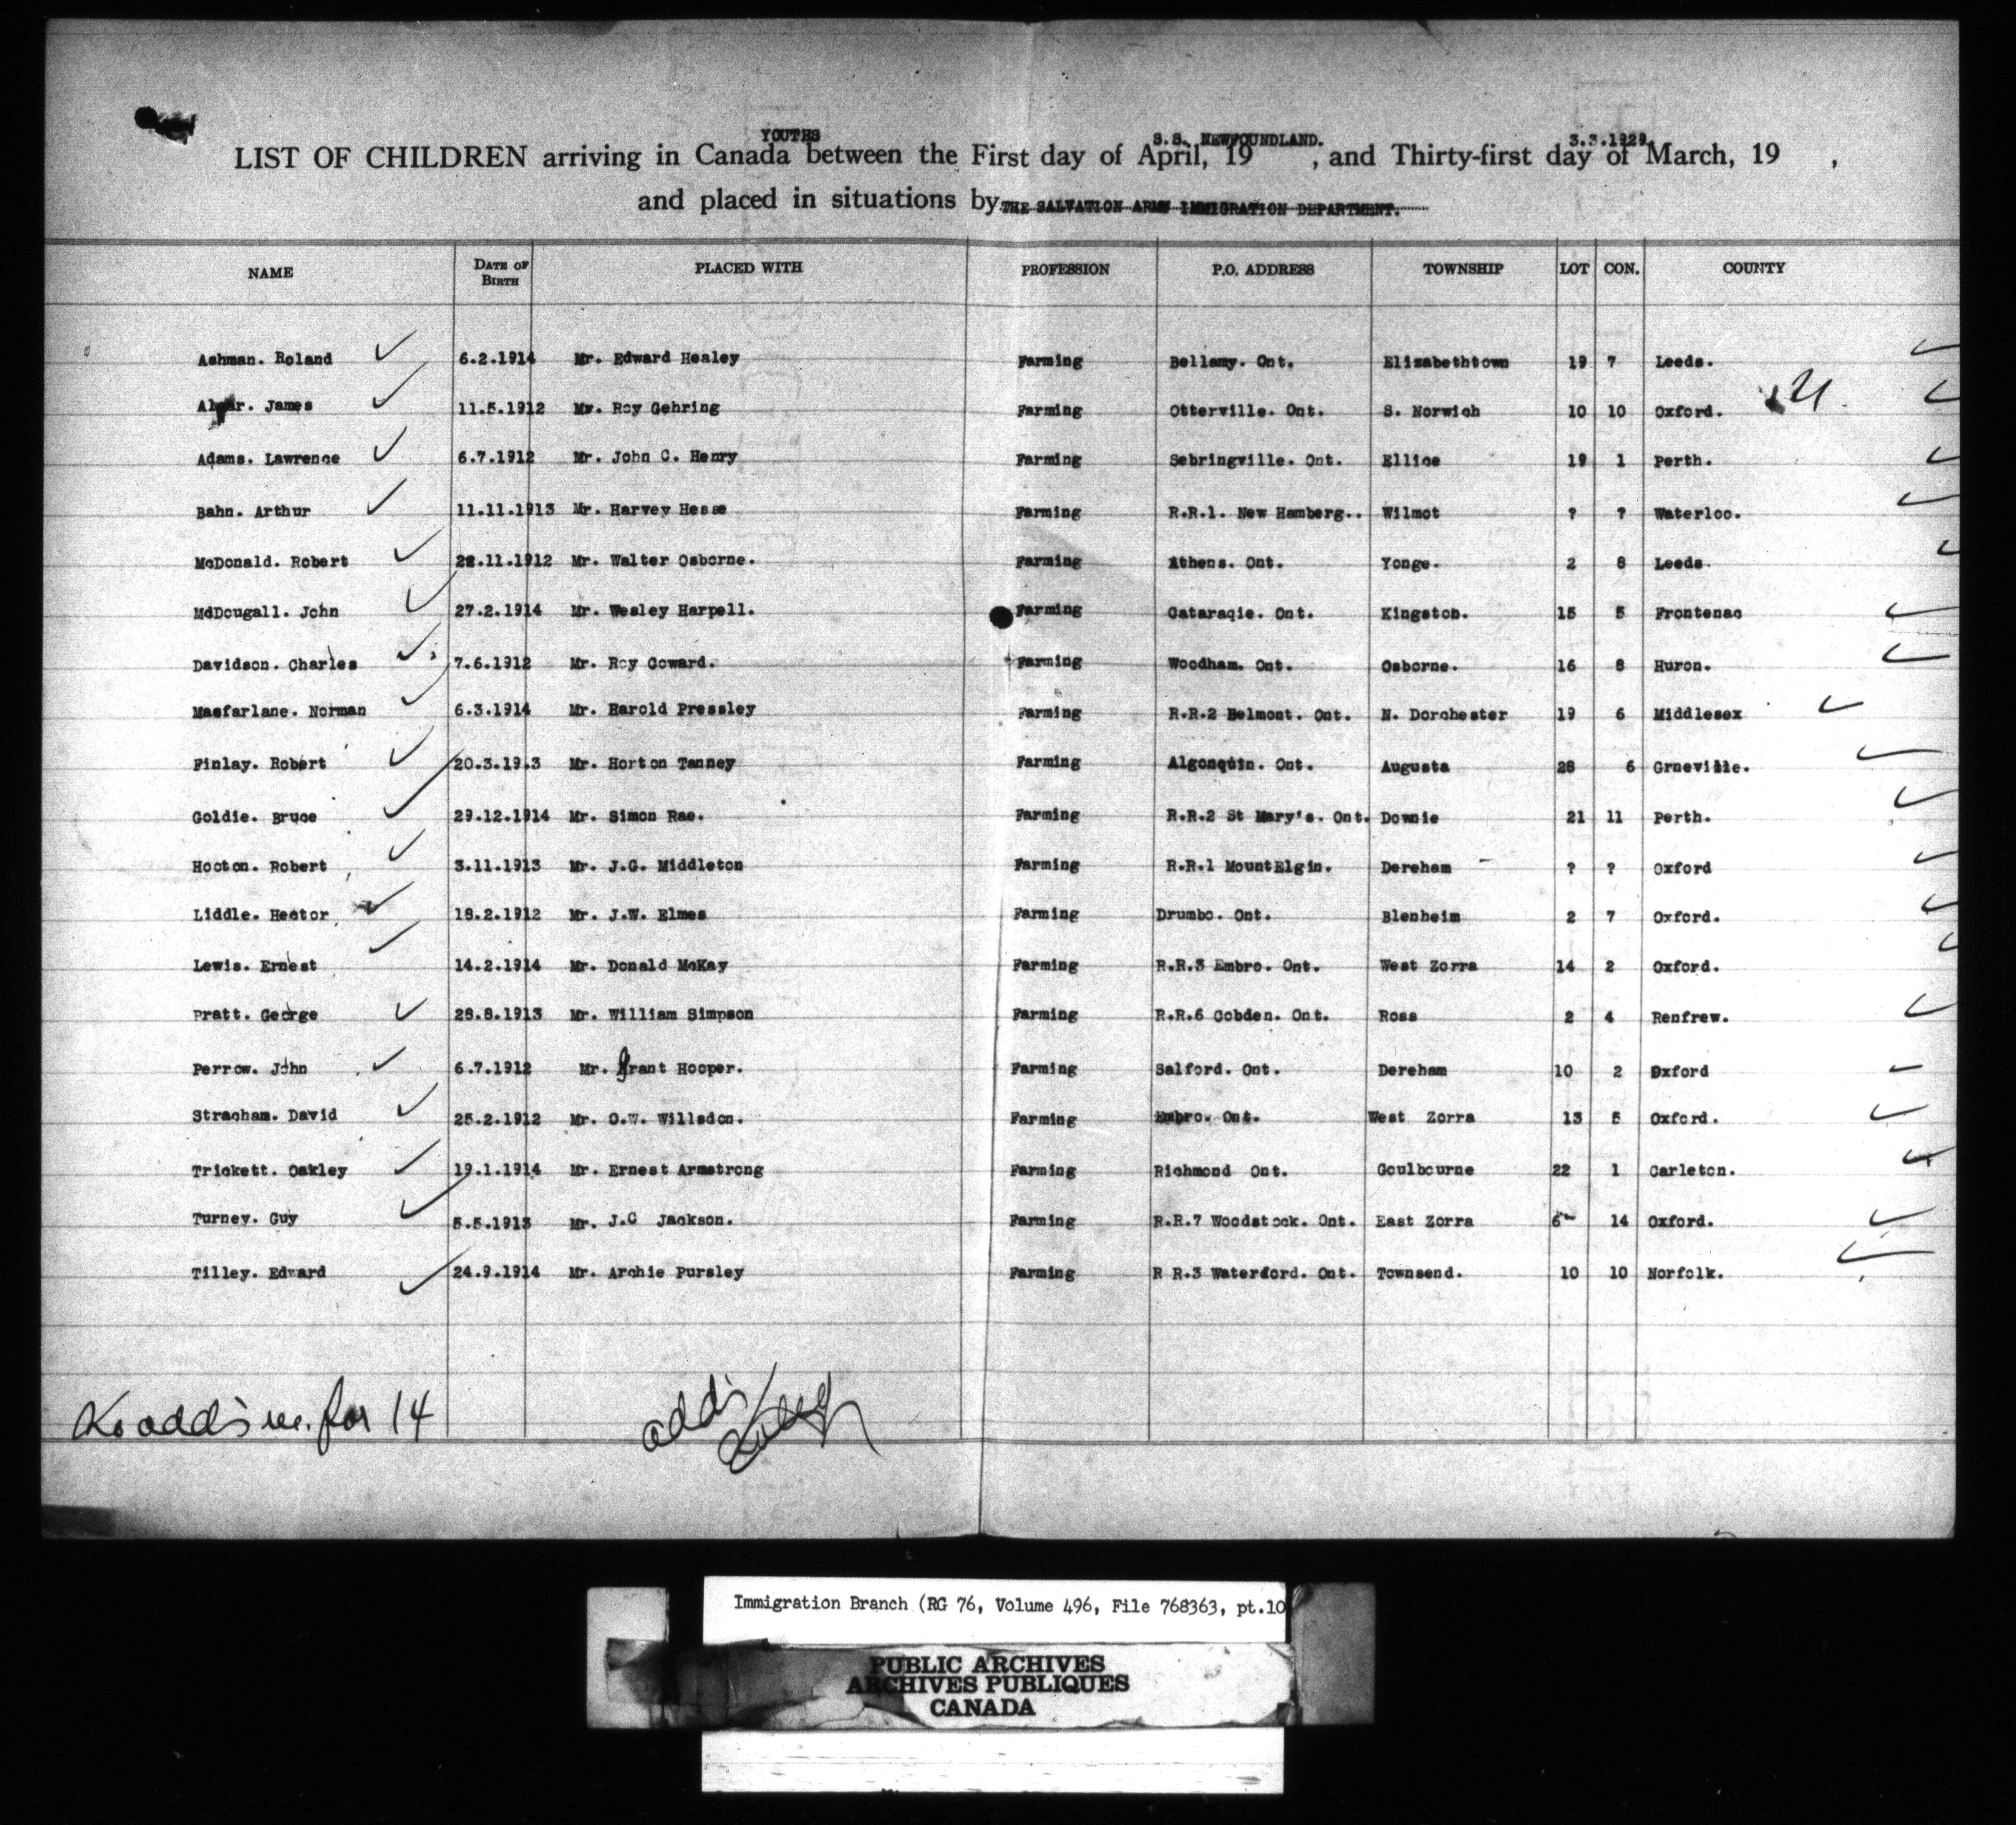 YOUTHS S.S. NEWFOUNDLAND. 3.3.1929
LIST OF CHILDREN arriving in Canada between the First day of April, 19 , and Thirty-first day of March, 19 ,
and placed in situations by THE SALVATION ARMY IMMIGRATION DEPARTMENT.
NAME DATE OF BIRTH PLACED WITH PROFESSION P.O. ADDRESS TOWNSHIP LOT CON. COUNTY
Ashman. Roland 6.2.1914 Mr. Edward Healey Farming Bellamy. Ont. Elizabethtown 19 7 Leeds.
James 11.5.1912 Mr. Roy Gehring Farming Otterville. Ont. S. Norwich 10 10 Oxford.
Adams. Lawrence 6.7.1912 Mr. John C. Henry Farming Sebringville. Ont. Ellice 19 1 Perth.
Bahn. Arthur 11.11.1913 Mr. Harvey Hesse Farming R.R.1. New Hamberg.. Wilmot ? ? Waterloo.
McDonald. Robert 28.11.1912 Mr. Walter Osborne. Farming Athens. Ont. Yonge. 2 8 Leeds.
McDougall. John 27.2.1914 Mr. Wesley Harpell. Farming Cataraqie. Ont. Kingston. 15 5 Frontenac
Davidson. Charles 7.6.1912 Mr. Roy Coward. Farming Woodham. Ont. Osborne. 16 8 Huron.
Macfarlane. Norman 6.3.1914 Mr. Harold Pressley Farming R.R.2 Belmont. Ont. N. Dorchester 19 6 Middlesex
Finlay. Robert 20.3.19.3 Mr. Horton Tanney Farming Algonquin. Ont. Augusta 28 6 Grneville.
Goldie. Bruce 29.12.1914 Mr. Simon Rae. Farming R.R.2 St Mary's. Ont. Downie 21 11 Perth.
Hooton. Robert 3.11.1913 Mr. J.G. Middleton Farming R.R.1 MountElgin. Dereham ? ? Oxford
Liddle. Hector 18.2.1912 Mr. J.W. Elmes Farming Drumbo. Ont. Blenheim 2 7 Oxford.
Lewis. Ernest 14.2.1914 Mr. Donald McKay Farming R.R.3 Embro. Ont. West Zorra 14 2 Oxford.
Pratt. George 28.8.1913 Mr. William Simpson Farming R.R.6 Cobden. Ont. Ross 2 4 Renfrew.
Perrow. John 6.7.1912 Mr. Grant Hooper. Farming Salford. Ont. Dereham 10 2 Oxford
Stracham. David 25.2.1912 Mr. O.W. Willsdon. Farming Embro. Ont. West Zorra 13 5 Oxford.
Trickett. Oakley 19.1.1914 Mr. Ernest Armstrong Farming Richmond Ont. Goulbourne 22 1 Carleton.
Turney. Guy 5.5.1913 Mr. J.C Jackson. Farming R.R.7 Woodstock. Ont. East Zorra 6 14 Oxford.
Tilley. Edward 24.9.1914 Mr. Archie Pursley Farming R R.3 Waterford. Ont. Townsend. 10 10 Norfolk.
for 14
Immigration Branch (RG 76, Volume 496, File 768363, pt.10
PUBLIC ARCHIVES
ARCHIVES PUBLIQUES
CANADA